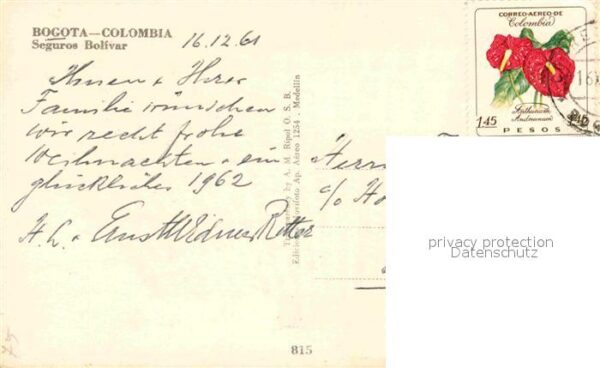 BOGOTA—COLOMBIA
Seguros Bolívar
16.12.61
Ihnen + Ihrer
Familie wünschen
wir recht frohe
Weihnachten + ein
glückliches 1962
H. L. + Ernst Ritter
by A. M. Ripol O. S. B.
Ap. Aéreo 1234 . Medellín
815
CORREO-AEREO-DE
Colombia
Anthurium
Andreanum
1.45
PESOS
Herrn
c/o
privacy protection
Datenschutz